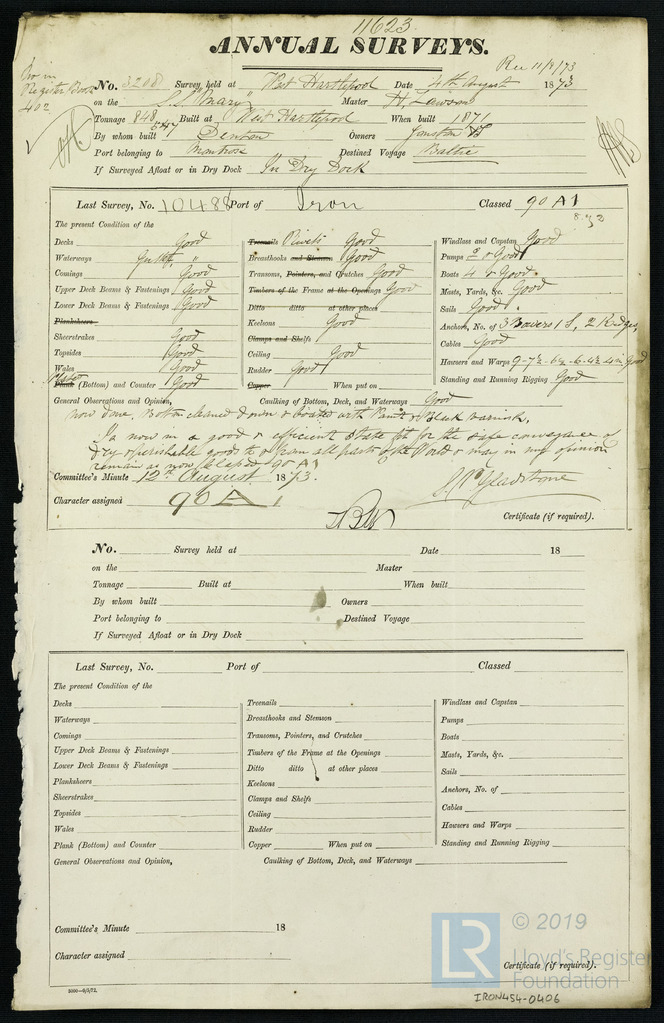 11623
ANNUAL SURVEYS.
Rec 11/8/73
No in
Register Book
402
No. 3208 Survey held at West Hartlepool Date 4th August 1873
on the S.S. "Mary" Master H. Lawson
Tonnage 848 Built at West Hartlepool When built 1871
By whom built Denton Owners
Port belonging to Montrose Destined Voyage Baltic
If Surveyed Afloat or in Dry Dock In Dry Dock
Last Survey, No. 10488 Port of Iron Classed 90 A1
The present Condition of the
Decks Good
Waterways Good
Comings Good
Upper Deck Beams & Fastenings Good
Lower Deck Beams & Fastenings Good
Planksheers
Sheerstrakes Good
Topsides Good
Wales Good
Plates
Plank (Bottom) and Counter Good
Treenails Rivets Good
Breasthooks and Stemson Good
Transoms, Pointers, and Crutches Good
Timbers of the Frame at the Openings Good
Ditto ditto at other places
Keelsons Good
Clamps and Shelfs
Ceiling Good
Rudder Good
Copper When put on
Windlass and Capstan Good
Pumps 2 & Good
Boats 4 & Good
Masts, Yards, &c. Good
Sails Good
Anchors, No. of 3 Bowers 1 S, 2 Kedges,
Cables Good
Hawsers and Warps Good
Standing and Running Rigging Good
General Observations and Opinion, Caulking of Bottom, Deck, and Waterways Good
Now done, Bottom cleaned down & coated with Paint & Black Varnish,
Is now in a good & efficient state fit for the safe conveyance of
dry & perishable goods to & from all parts of the World & may in my opinion
remain as now Classed 90 A1
Committee's Minute 12th August 1873.
Gladstone
Character assigned 90 A 1
Certificate (if required).
No. Survey held at Date 18
on the Master
Tonnage Built at When built
By whom built Owners
Port belonging to Destined Voyage
If Surveyed Afloat or in Dry Dock
Last Survey, No. Port of Classed
The present Condition of the
Decks
Waterways
Comings
Upper Deck Beams & Fastenings
Lower Deck Beams & Fastenings
Planksheers
Sheerstrakes
Topsides
Wales
Plank (Bottom) and Counter
Treenails
Breasthooks and Stemson
Transoms, Pointers, and Crutches
Timbers of the Frame at the Openings
Ditto ditto at other places
Keelsons
Clamps and Shelfs
Ceiling
Rudder
Copper When put on
Windlass and Capstan
Pumps
Boats
Masts, Yards, &c.
Sails
Anchors, No. of
Cables
Hawsers and Warps
Standing and Running Rigging
General Observations and Opinion, Caulking of Bottom, Deck, and Waterways
Committee's Minute 18
Character assigned
Certificate (if required).
LR
© 2019
Lloyd's Register
Foundation
IRON454-0406